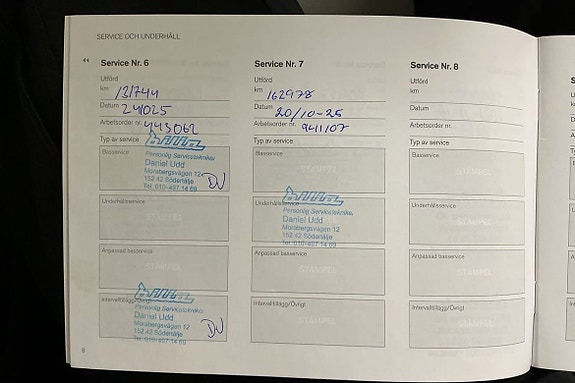 SERVICE OCH UNDERHÅLL
Service Nr. 6
Utförd
km 131744
Datum 241025
Arbetsorder nr. 443062
Typ av service
Basservice
bilia
Personlig Servicetekniker
Daniel Udd
Morabergsvägen 12
152 42 Södertälje
Tel. 010-497 14 69
DU
Underhållsservice
STÄMPEL
Anpassad basservice
Intervalltillägg/Övrigt
bilia
Personlig Servicetekniker
Daniel Udd
Morabergsvägen 12
152 42 Södertälje
Tel. 010-497 14 69
DU
8
Service Nr. 7
Utförd
km 162978
Datum 20/10-25
Arbetsorder nr. 9411107
Typ av service
Basservice
Underhållsservice
bilia
Personlig Servicetekniker
Daniel Udd
Morabergsvägen 12
152 42 Södertälje
Tel. 010-497 14 69
Anpassad basservice
STÄMPEL
Intervalltillägg/Övrigt
STÄMPEL
Service Nr. 8
Utförd
km
Datum
Arbetsorder nr.
Typ av service
Basservice
Underhållsservice
Anpassad basservice
STÄMPEL
Intervalltillägg/Övrigt